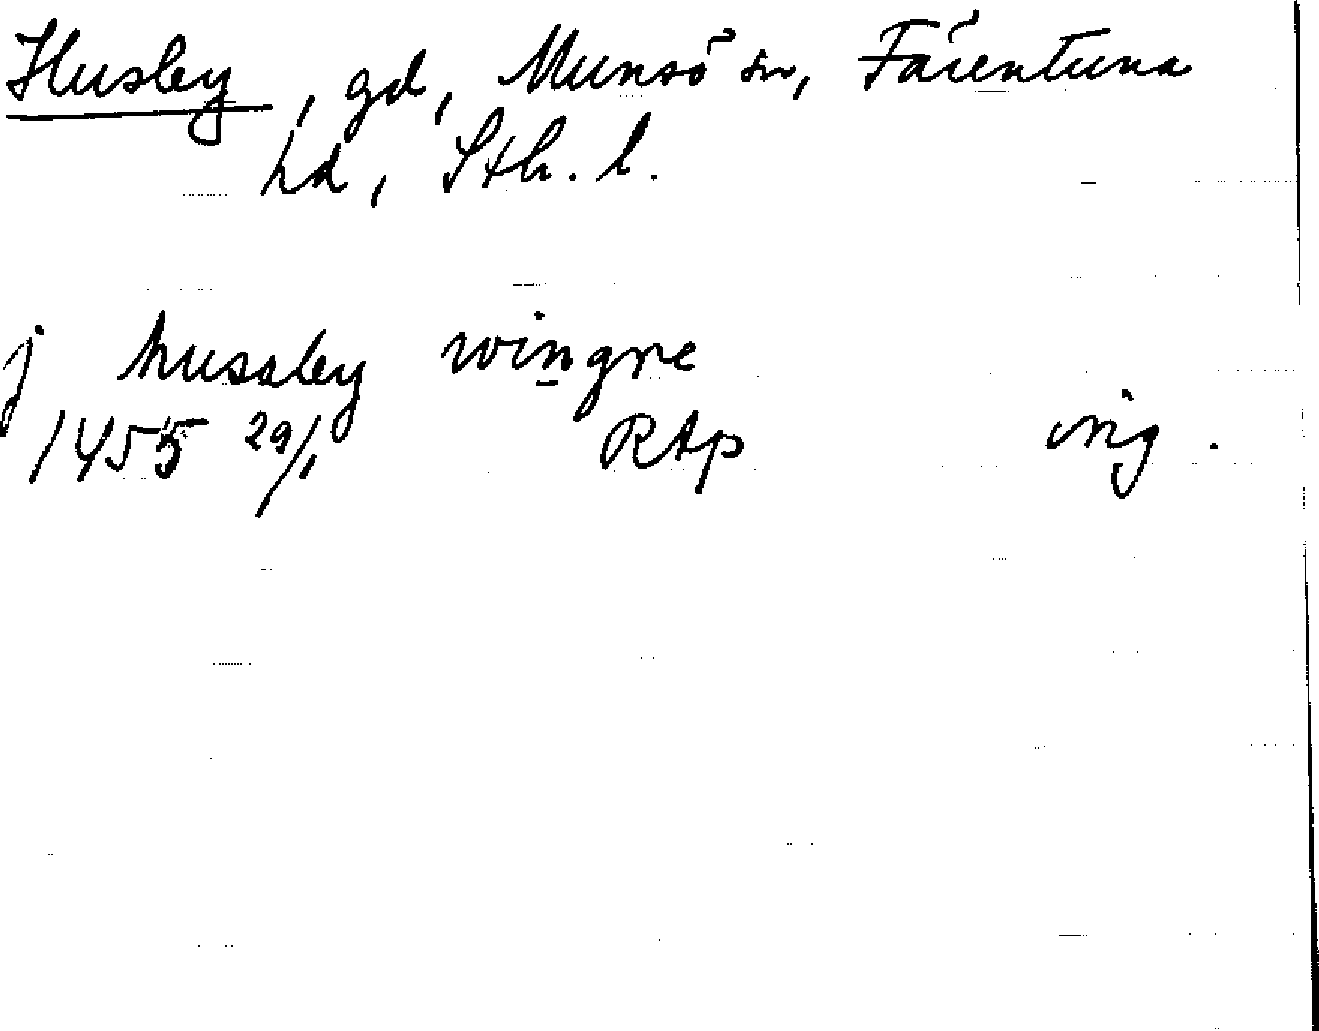 Husby, gd, Munsö sn, Färentuna
hd, Sth. l.
j hussby wingre
1455 29/1 RAp orig.